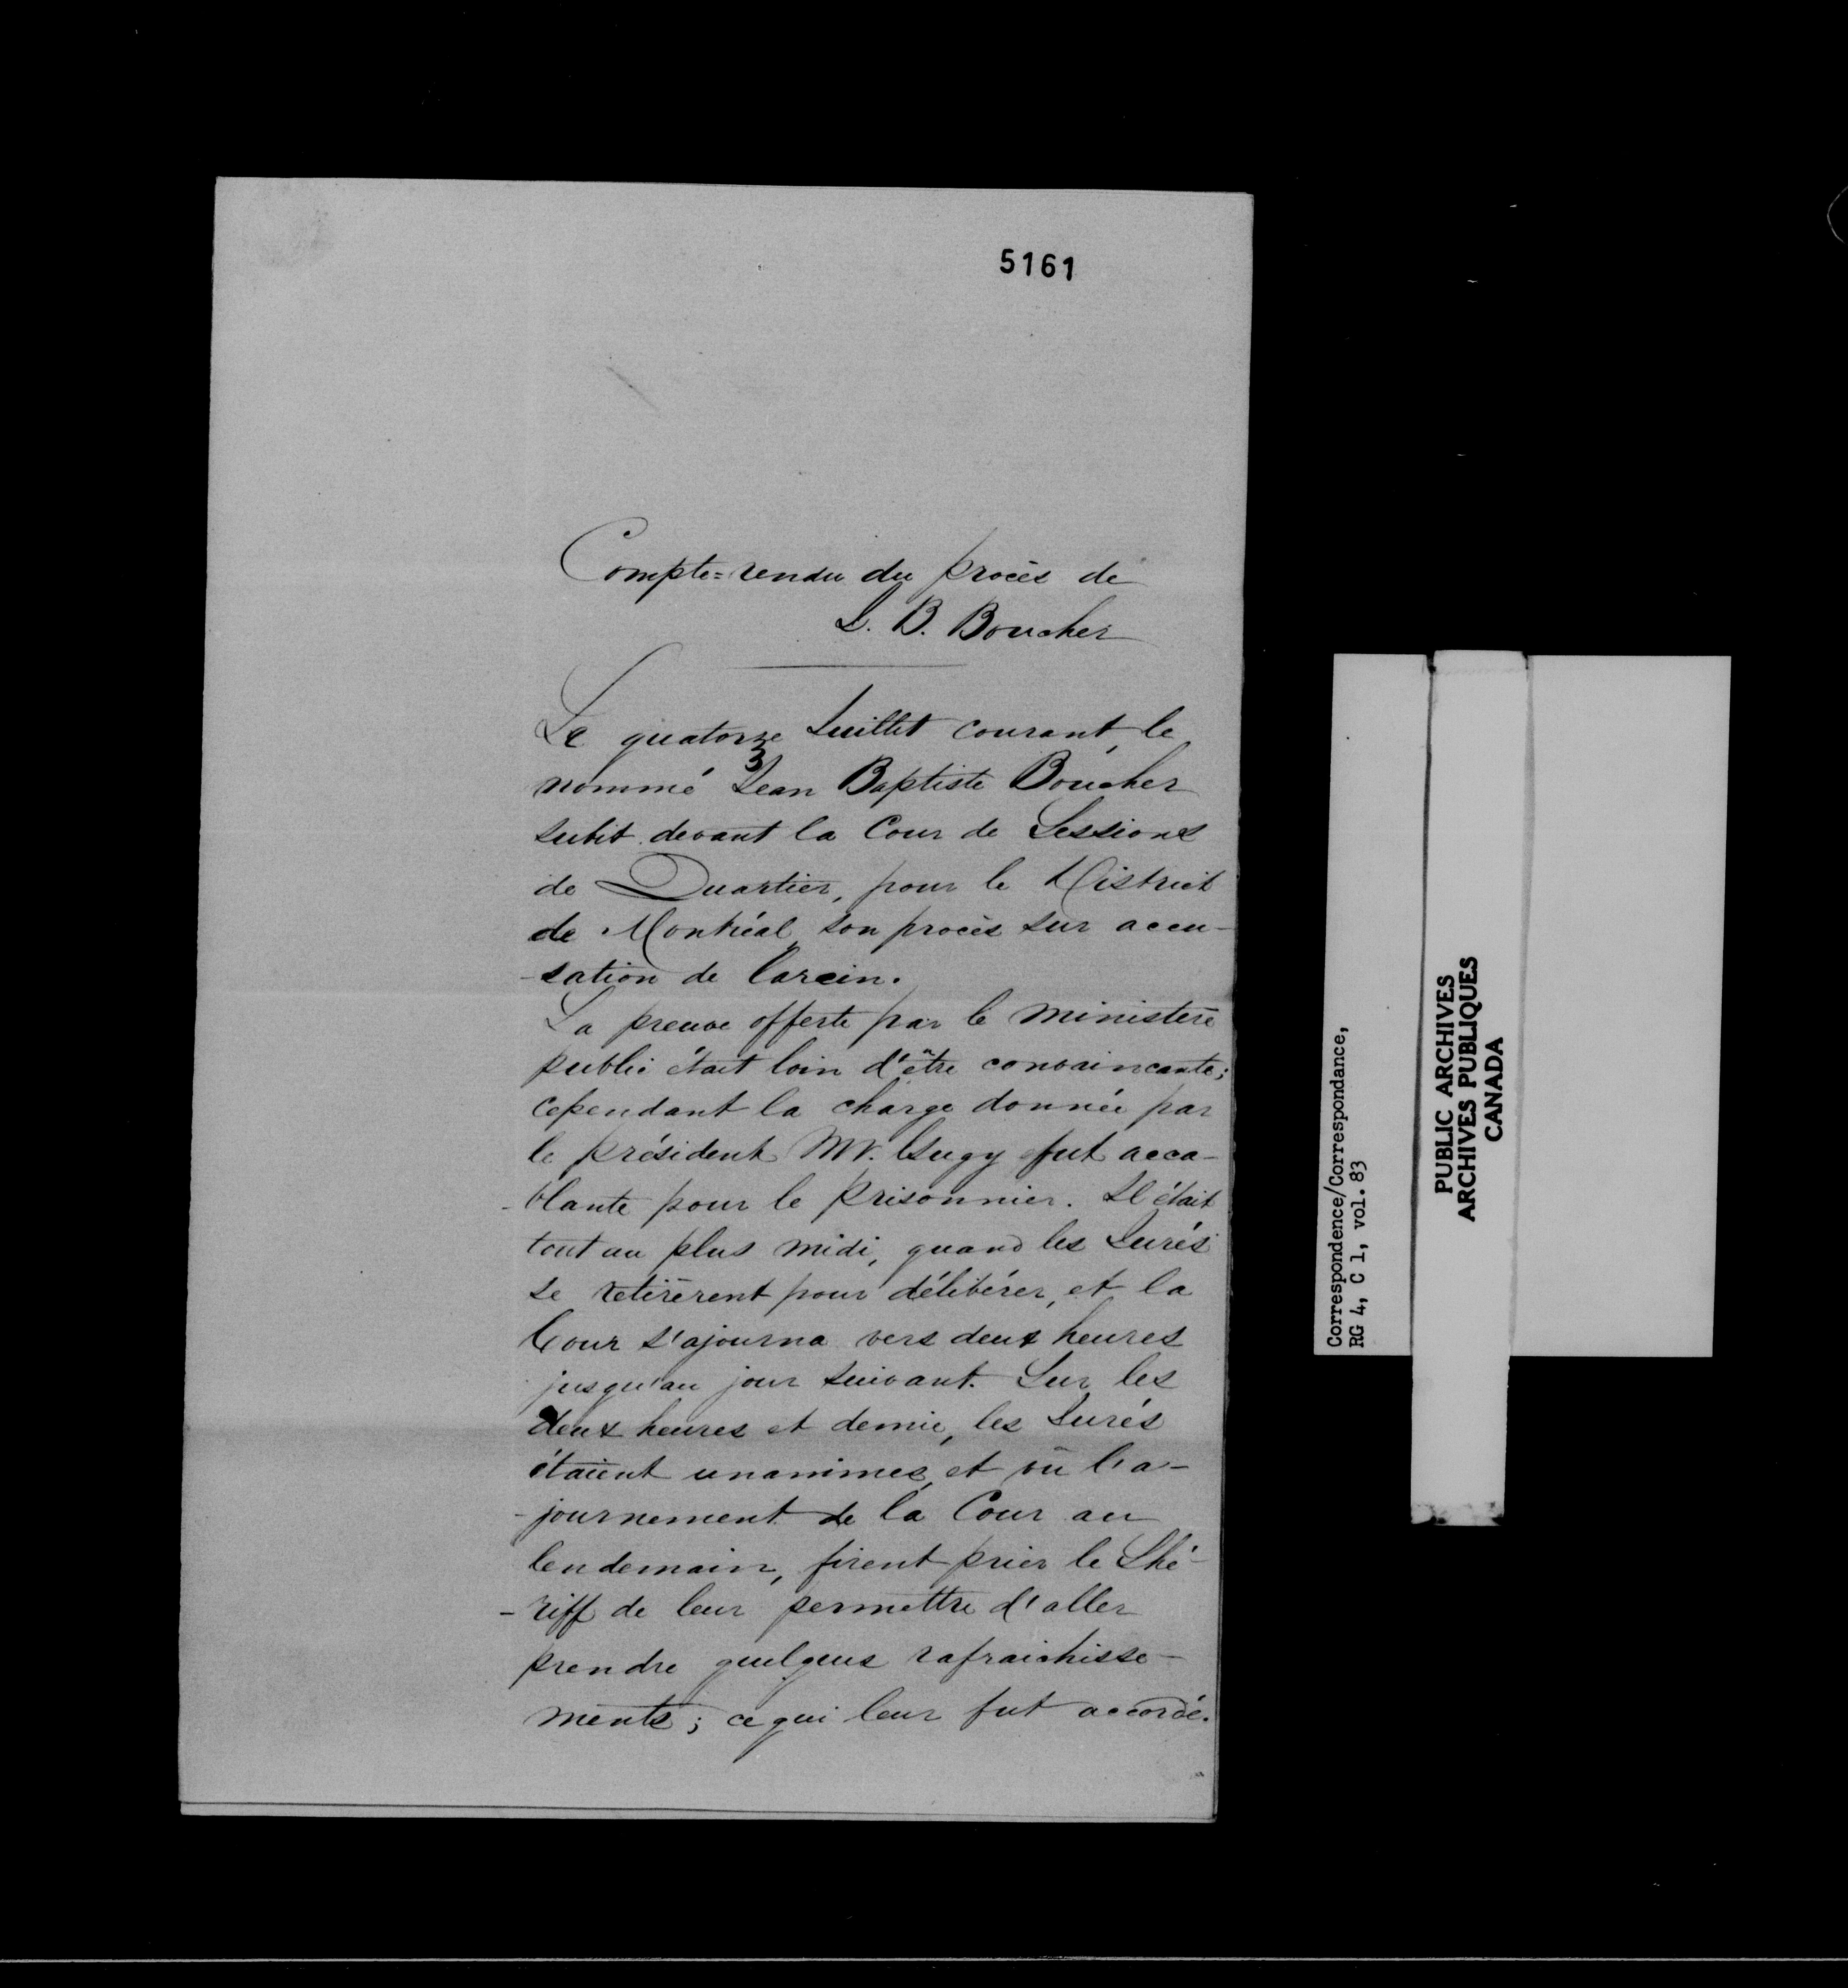 5161
Compte=rendu du procès de
J. B. Boucher
Le quatorze Juillet courant, le
nommé Jean Baptiste Boucher
subit devant la Cour de Sessions
de Quartier, pour le District
de Montréal, son procès sur accu-
-sation de larcin.
La preuve offerte par le ministère
public était loin d'être convaincante;
cependant la charge donnée par
le président Mr. Gugy fut acca-
-blante pour le prisonnier. Il était
tout au plus midi, quand les Jurés
se retirèrent pour délibérer, et la
Cour s'ajourna vers deux heures
jusqu'au jour suivant. Sur les
deux heures et demie, les Jurés
étaient unanimes, et vû l'a-
-journement de la Cour au
lendemain, firent prier le Shé-
-riff de leur permettre d'aller
prendre quelques rafraichisse-
ments; ce qui leur fut accordé.
Correspondence/Correspondance,
RG 4, C 1, vol. 83
PUBLIC ARCHIVES
ARCHIVES PUBLIQUES
CANADA